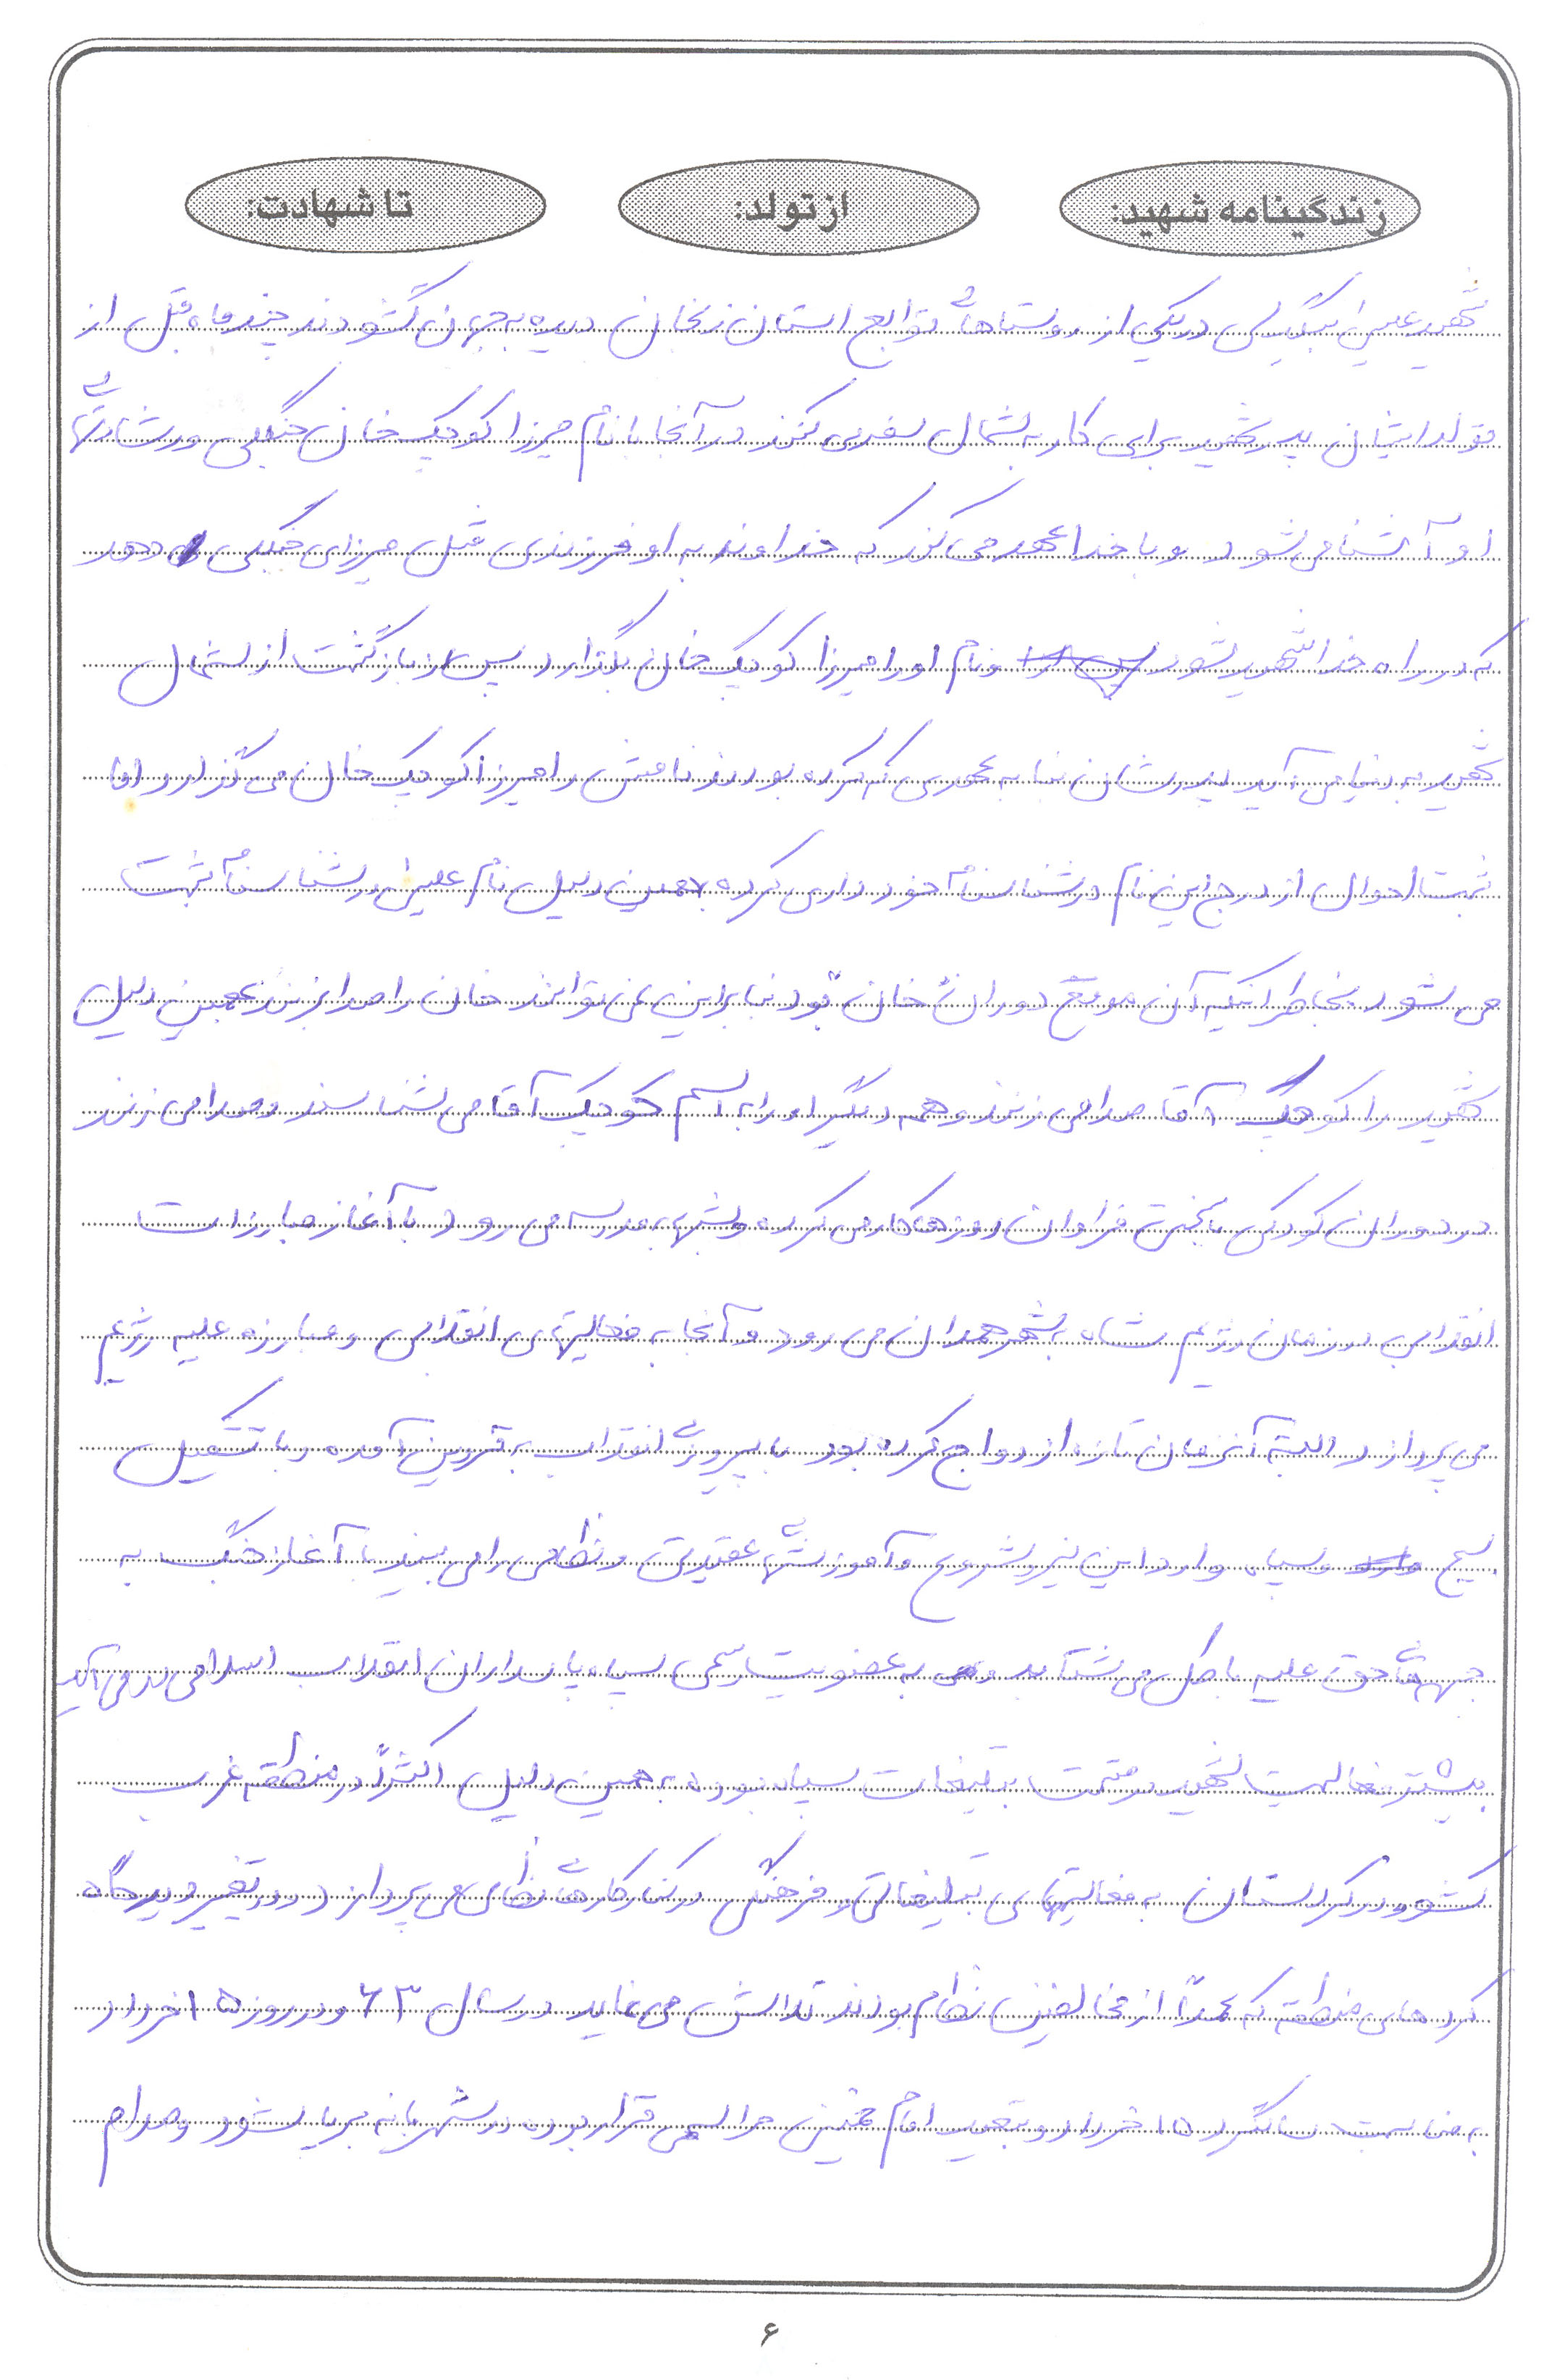 زندگینامه شهید: از تولد: تا شهادت:
شهید علی در یکی از روستاهای توابع استان زنجان دیده به جهان گشودند چند ماه قبل از
تولد ایشان پدر شهید برای کار به شمال سفر می کند در آنجا با نام میرزا کوچک خان جنگلی و رشادتهای
او آشنا می شود و با خدا عهد می کند که خداوند به او فرزندی مثل میرزای جنگلی دهد
که در راه خدا شهید شود و نام او را میرزا کوچک خان بگذارد پس از بازگشت از شمال
شهید به دنیا می آید پدرشان بنا به عهدی که کرده بودند نامش را میرزا کوچک خان می گذارد اما
ثبت احوال از درج این نام در شناسنامه خودداری کرده بهمین دلیل نام علی در شناسنامه ثبت
می شود بخاطر اینکه آن موقع دوران خان بود بنابراین نمی توانند خان را صدا بزنند بهمین دلیل
شهید را کوچک آقا صدا می زنند و همه دیگر او را به اسم کوچک آقا می شناسند و صدا می زنند
در دوران کودکی با سختی فراوان روزها کار می کرده و شبها به مدرسه می رود با آغاز مبارزات
انقلابی در زمان رژیم شاه به شهر همدان می رود و آنجا به فعالیتهای انقلابی و مبارزه علیه رژیم
می پردازد البته آنزمان تازه ازدواج کرده بود با پیروزی انقلاب به قزوین آمده و با تشکیل
بسیج و سپاه وارد این نیرو شروع و آموزشهای عقیدتی و نظامی را می بیند با آغاز جنگ به
جبهه های حق علیه باطل می شتابد و به عضویت رسمی سپاه پاسداران انقلاب اسلامی در می آید
بیشتر فعالیت شهید در قسمت تبلیغات سپاه بوده به همین دلیل اکثراً در منطقه غرب
کشور و در کردستان به فعالیتهای تبلیغاتی و فرهنگی در کنار کارهای نظامی می پردازد و در تغییر دیدگاه
کردهای منطقه که عمداً از مخالفین نظام بودند تلاش می نماید در سال ۶۳ و در روز ۱۵ خرداد
به مناسبت سالگرد ۱۵ خرداد و تبعید امام خمینی مراسمی قرار بوده در شهر بانه برپا شود و صدام
۶